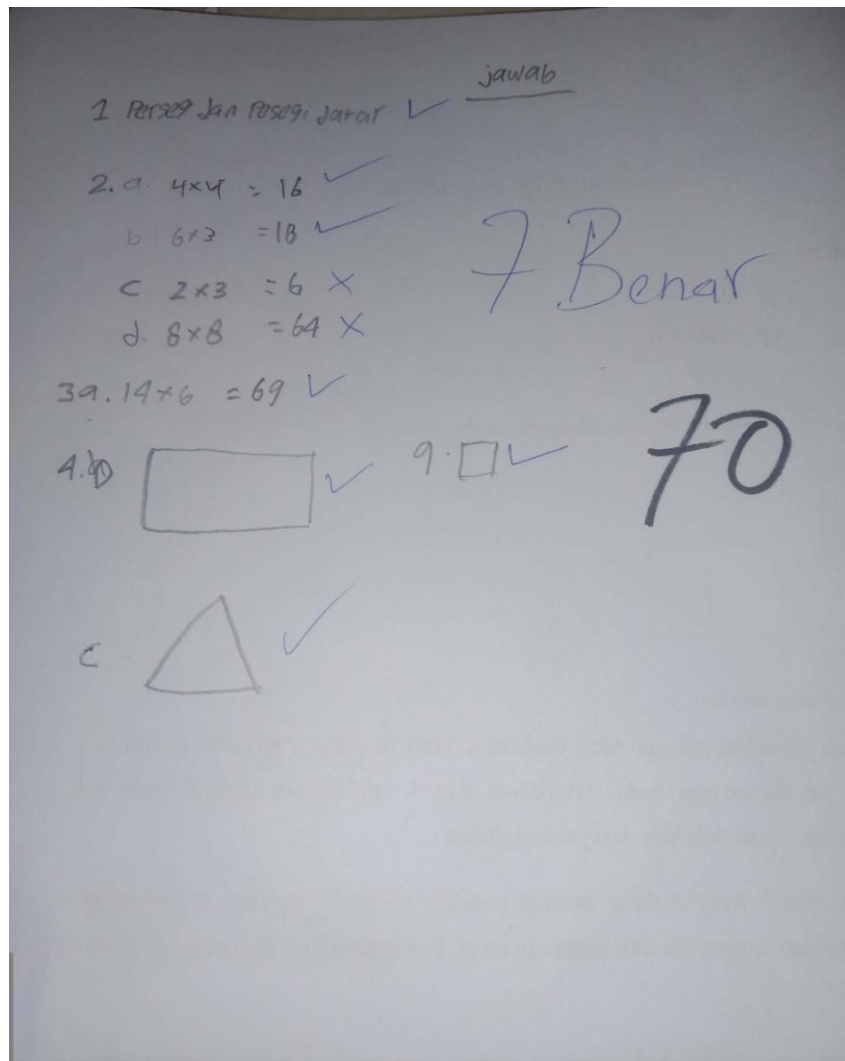 jawab
1 Perseg dan Pesegi datar ✓
2. a. 4x4 = 16 ✓
b 6x3 = 18 ✓
c 2x3 = 6 ×
d. 8x8 = 64 ×
7 Benar
3a. 14x6 = 69 ✓
4. b) ✓ a. ✓
70
c ✓